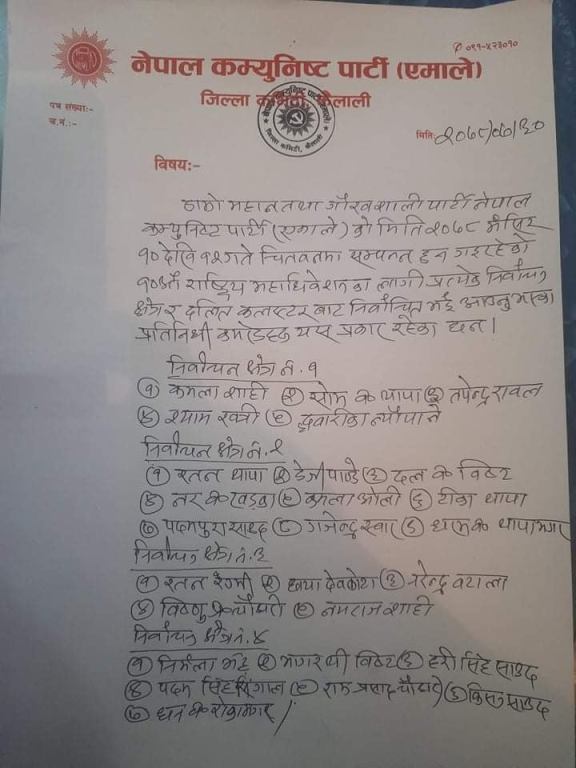 ✆ ०९१-५२३०१०
नेपाल कम्युनिष्ट पार्टी (एमाले)
जिल्ला कमिटी, कैलाली
पत्र संख्या:-
च.नं.:-
मिति: २०७८/०७/३०
विषय:-
हाम्रो महान तथा गौरवशाली पार्टी नेपाल
कम्युनिष्ट पार्टी (एमाले) को मिति २०७८ मंसिर
१० देखि १२ गते चितवनमा सम्पन्न हुन गइरहेको
१० औं राष्ट्रिय महाधिवेशनका लागी प्रत्येक निर्वाचन
क्षेत्र र दलित कलस्टर बाट निर्वाचित भई आउनु भएका
प्रतिनिधी कमरेडहरु यस प्रकार रहेका छन।
निर्वाचन क्षेत्र नं. १
(१) कमला शाही (२) सोम के थापा (३) तपेन्द्र रावल
(४) श्याम खत्री (५) द्वारीका न्यौपाने
निर्वाचन क्षेत्र नं. २
(१) रतन थापा (२) डेजी पाण्डे (३) दल के विष्ट
(४) नर के खड्का (५) कमला ओली (६) टीका थापा
(७) पदम प्रसाद (८) गजेन्द्र स्वार (९) धाम के थापा मगर
निर्वाचन क्षेत्र नं. ३
(१) रतन रेग्मी (२) छाया देवकोटा (३) नरेन्द्र वटाला
(४) विष्णु प्र चौधरी (५) नमराज शाही
निर्वाचन क्षेत्र नं. ४
(१) निर्मला भट्ट (२) भगरथी विष्ट (३) हरी सिंह साउद
(४) पदम सिंह धिंगाल (५) राम प्रसाद चौधरी (६) किसन साउद
(७) धन के रोका मगर